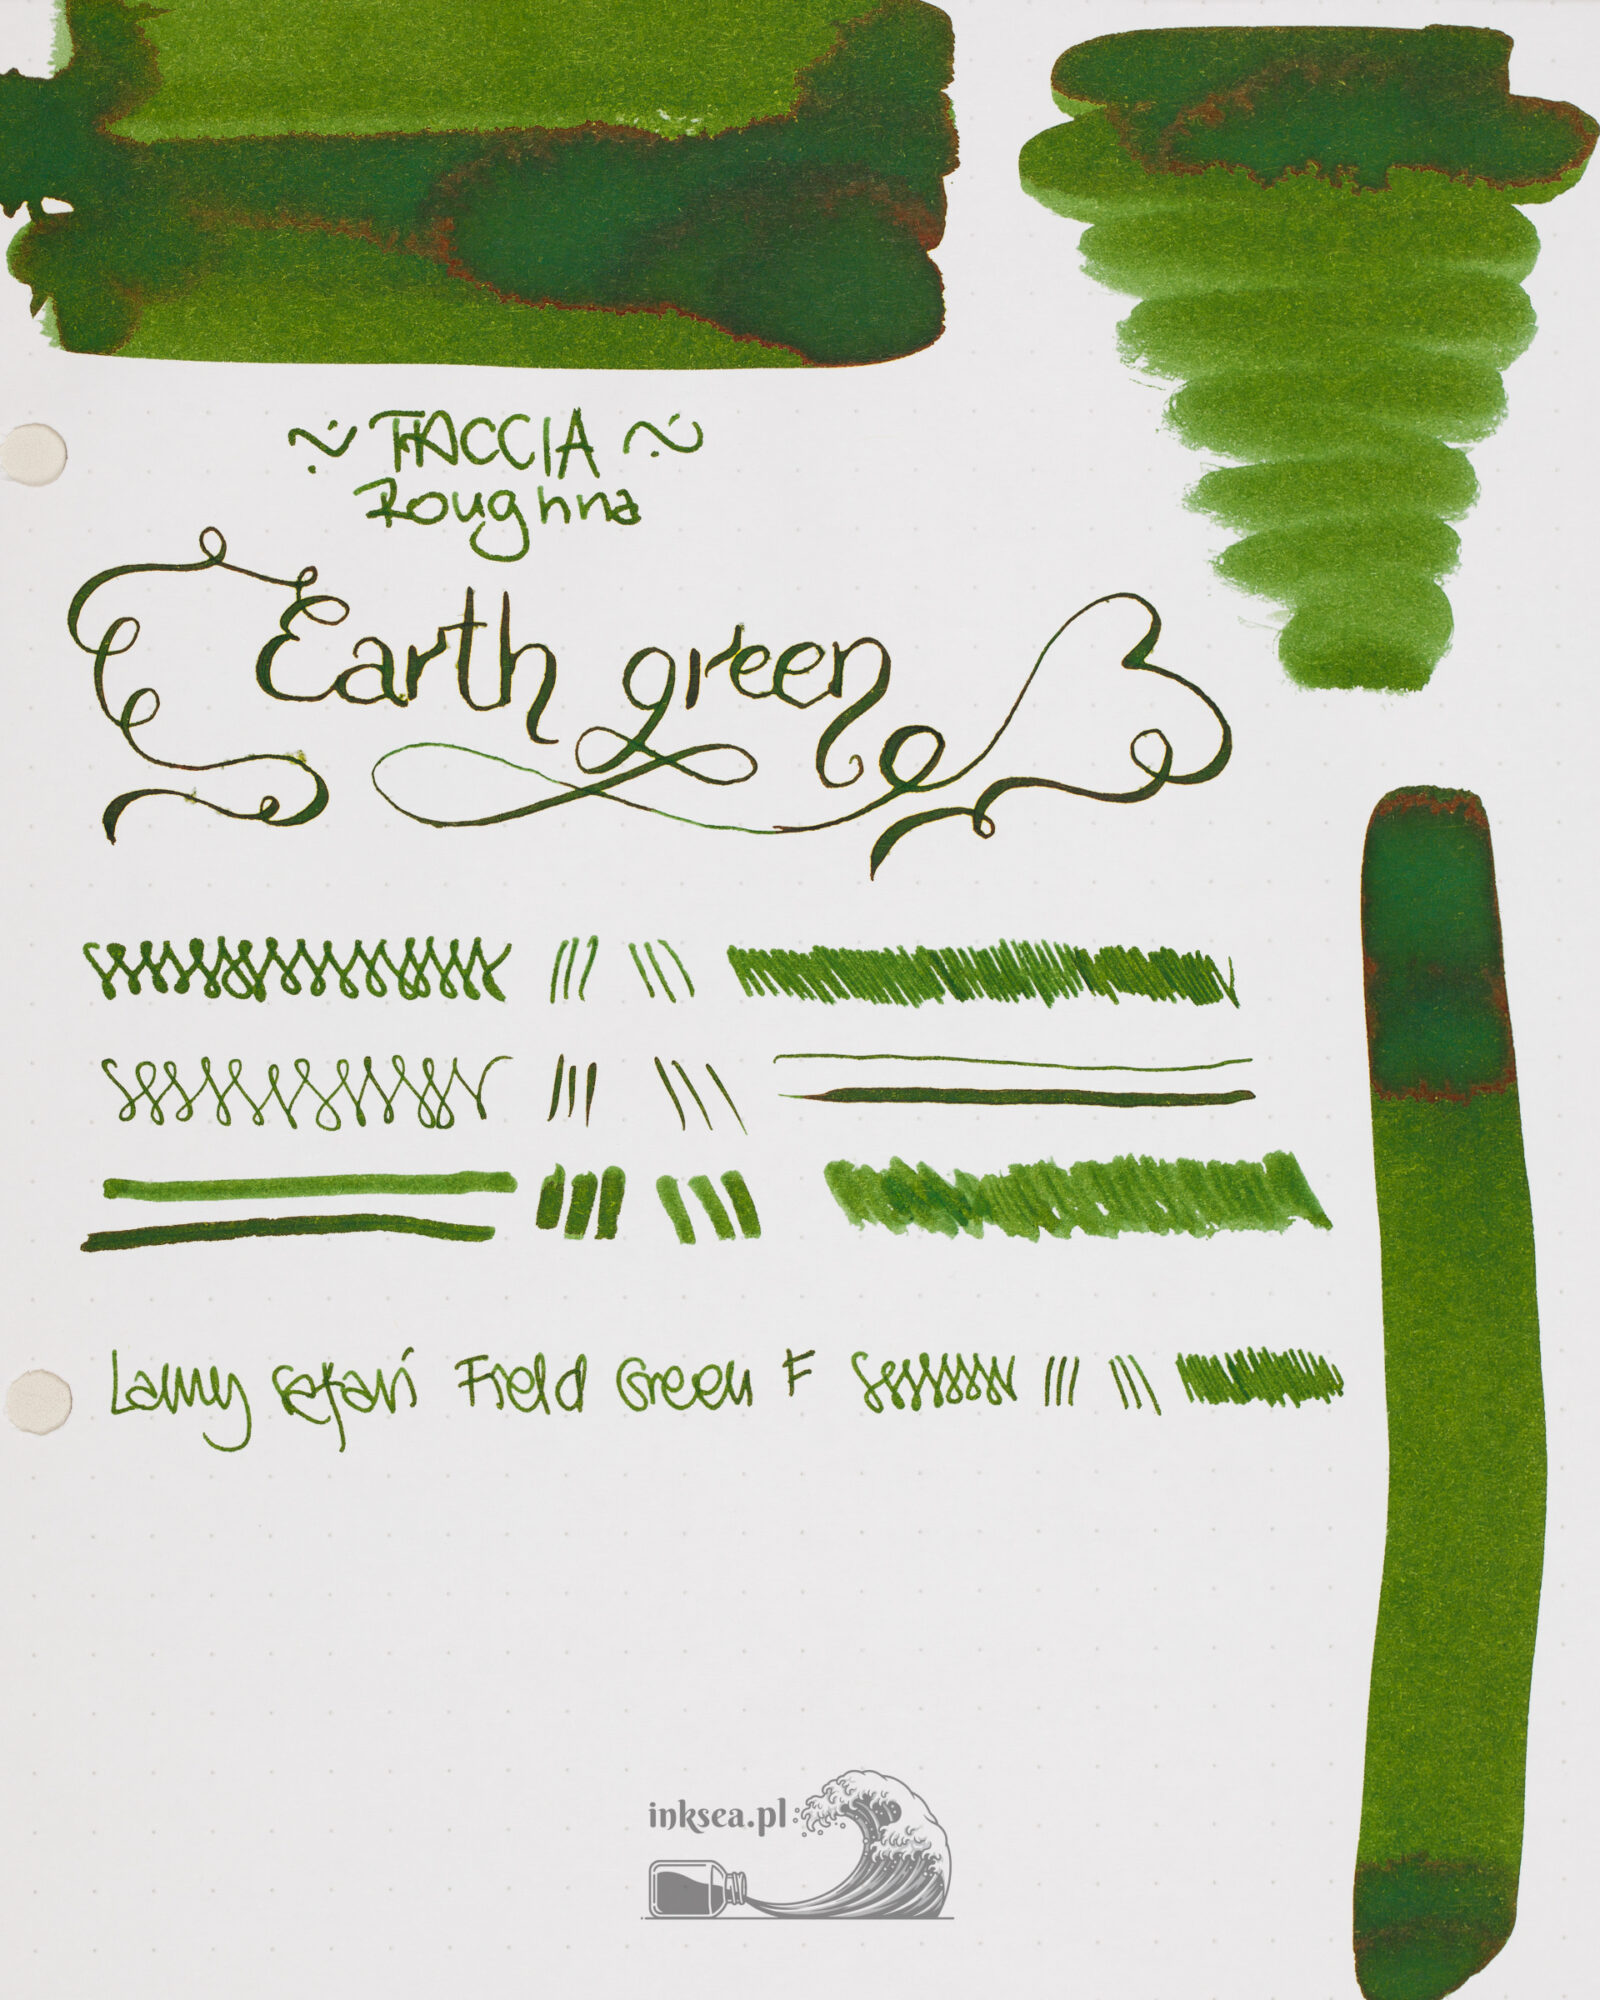 ~ TACCIA ~
Roughna
Earth green
Lamy Safari Field Green F
inksea.pl